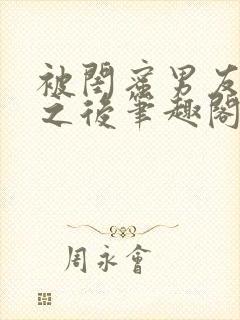 被閨蜜男友
之後筆趣閣
周永會